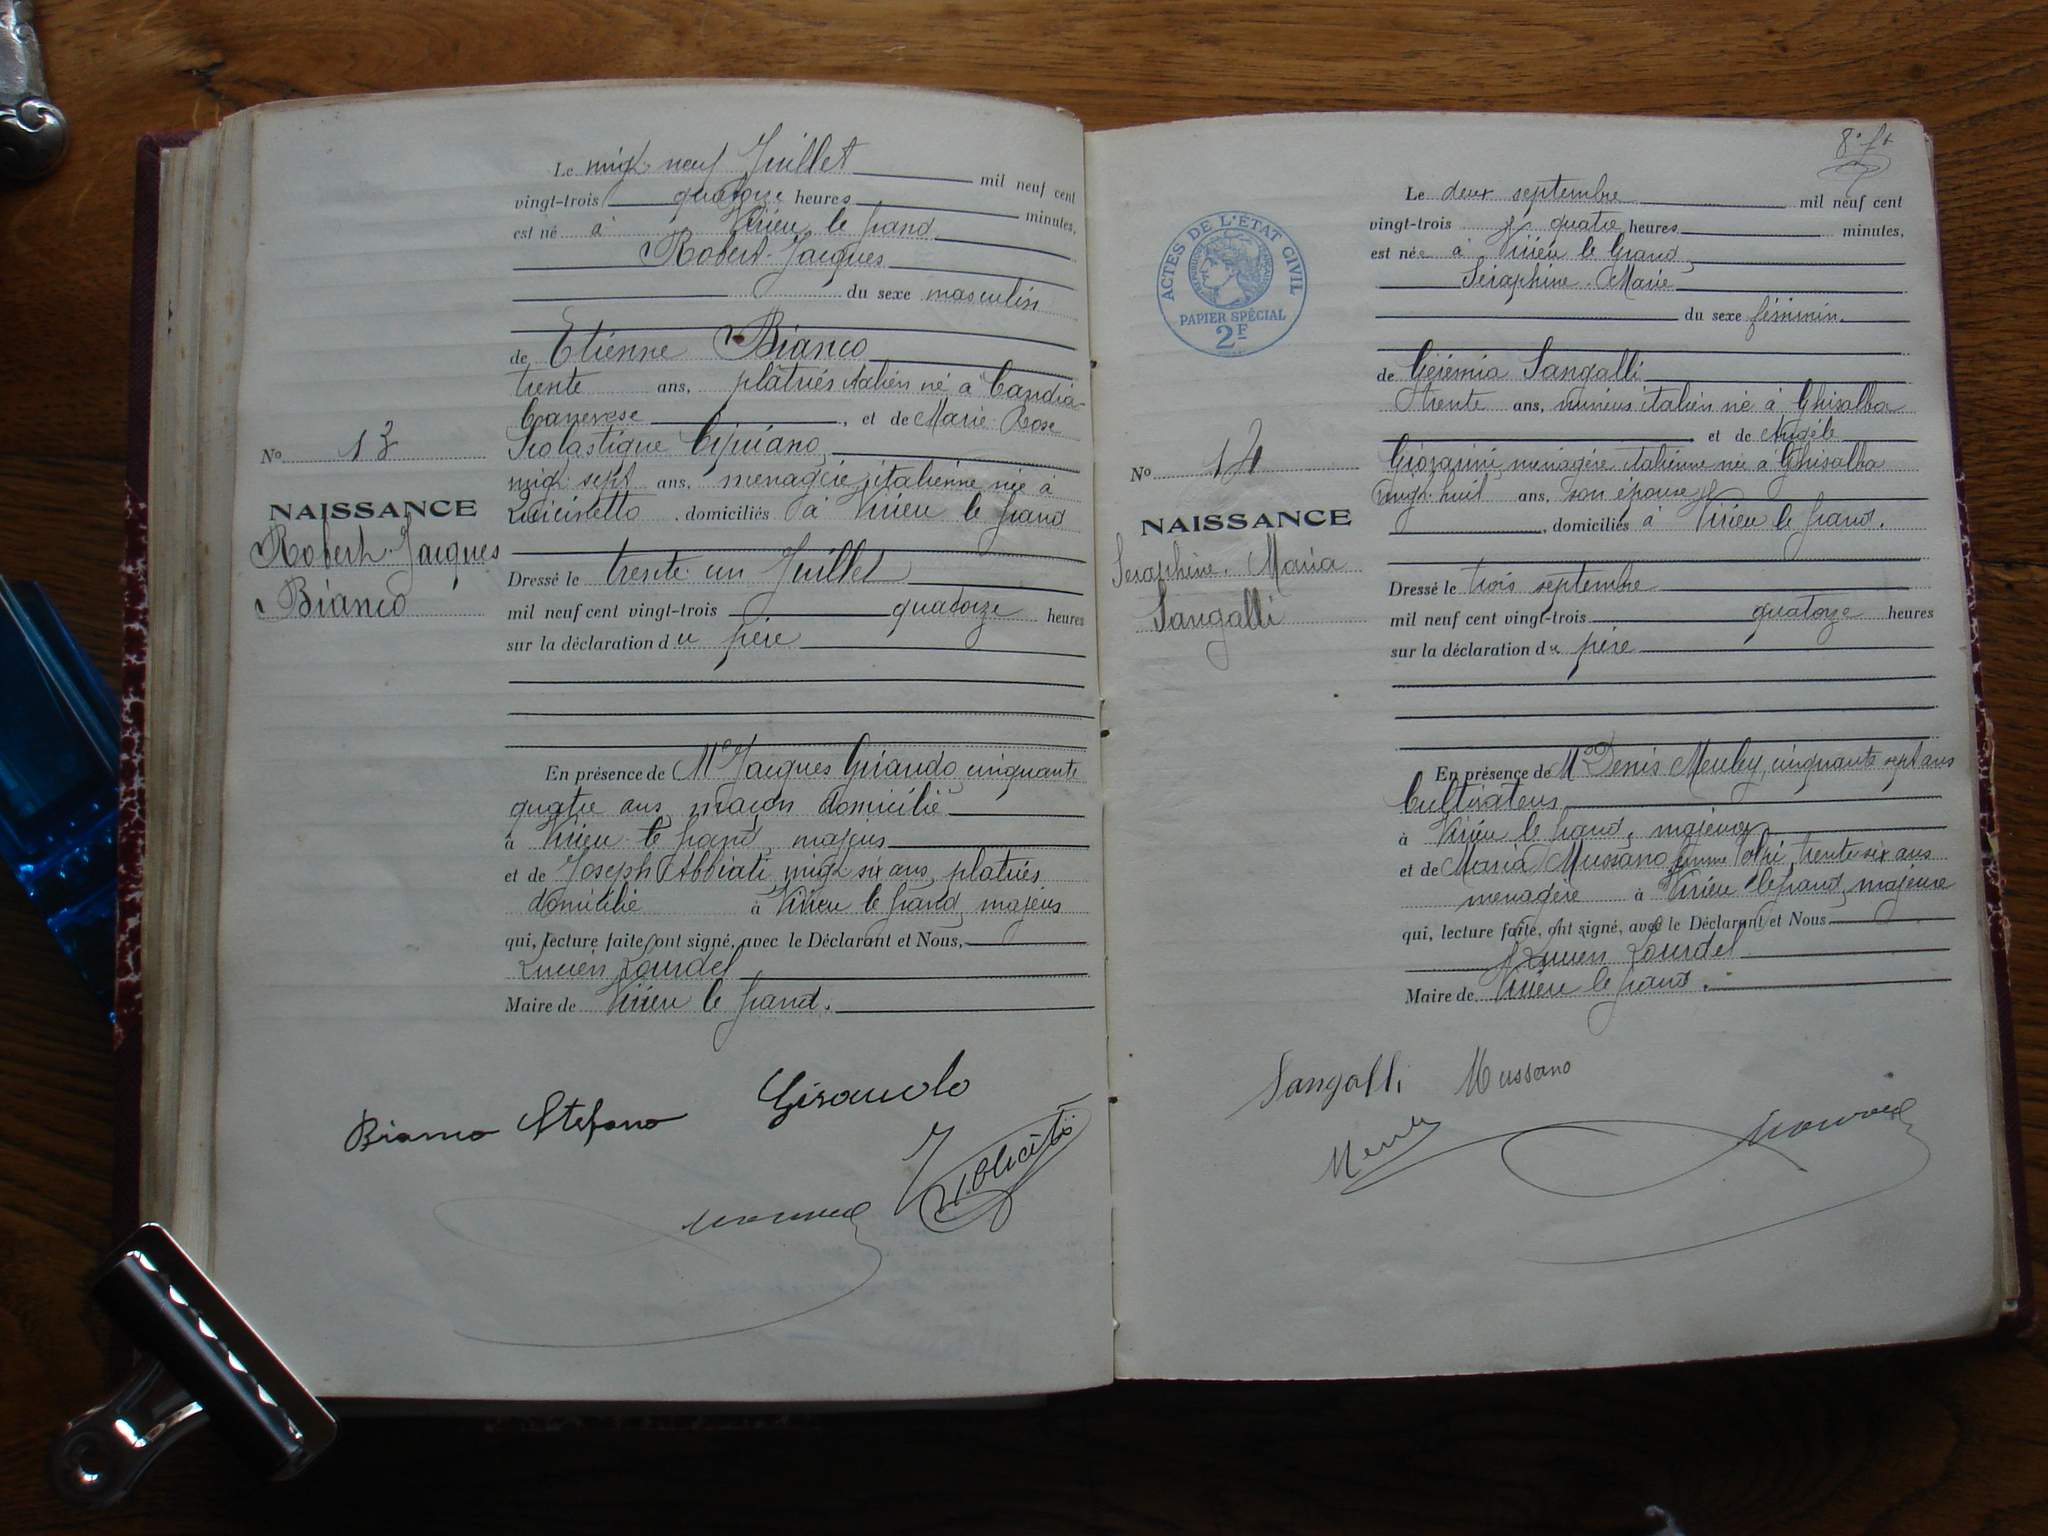 Le vingt neuf Juillet mil neuf cent
vingt-trois quatorze heures minutes,
est né à Virieu le Grand
Robert-Jacques
du sexe masculin
de Etienne Bianco
trente ans, plâtrier italien né à Candia
Canavese, et de Marie Rose
Scolastique Cipriano,
vingt sept ans, menagère, italienne née à
domiciliés à Virieu le Grand
No 13
NAISSANCE
Robert-Jacques
Bianco
Dressé le trente un Juillet
mil neuf cent vingt-trois quatorze heures
sur la déclaration du père
En présence de Mr Jacques Giraudo, cinquante
quatre ans, maçon domicilié
à Virieu le Grand, majeur
et de Joseph Abbiati, vingt six ans, platrier
domicilié à Virieu le Grand, majeur
qui, lecture faite, ont signé, avec le Déclarant et Nous,
Lucien Lourdel
Maire de Virieu le Grand.
Bianco Stefano
Giraudo
8e ft
ACTES DE L'ÉTAT CIVIL
PAPIER SPÉCIAL
2F
Le deux septembre mil neuf cent
vingt-trois quatre heures minutes,
est née à Virieu le Grand,
Séraphine-Marie
du sexe féminin.
de Gérémia Sangalli
trente ans, mineur italien né à Ghisalba
et de Angèle
menagère italienne née à Ghisalba
vingt-huit ans, son épouse
, domiciliés à Virieu le Grand.
No 14
NAISSANCE
Seraphine-Maria
Sangalli
Dressé le trois septembre
mil neuf cent vingt-trois quatorze heures
sur la déclaration du père
En présence de Mr Denis Meuley, cinquante sept ans
Cultivateur
à Virieu le Grand, majeur
et de Maria Mussano, femme trente six ans
menagère à Virieu le Grand, majeure
qui, lecture faite, ont signé, avec le Déclarant et Nous
Lucien Lourdel
Maire de Virieu le Grand.
Sangalli Mussano